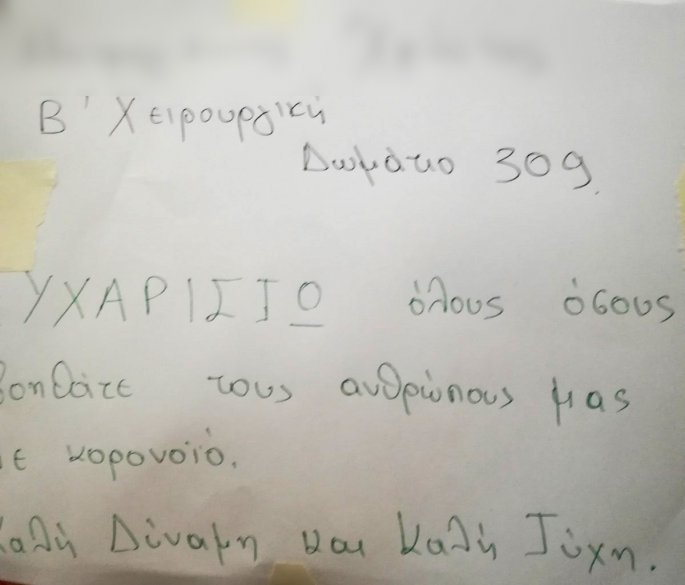 Β' Χειρουργική
Δωμάτιο 309
ΥΧΑΡΙΣΤΩ όλους όσους
βοηθάτε τους ανθρώπους μας
ε κορονοϊό.
Καλή Δύναμη και Καλή Τύχη.